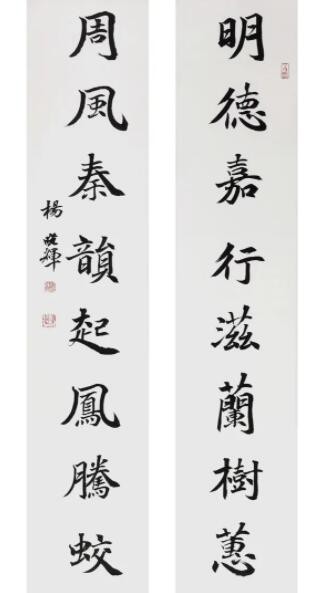 明德嘉行滋蘭樹蕙
周風秦韻起鳳騰蛟
楊